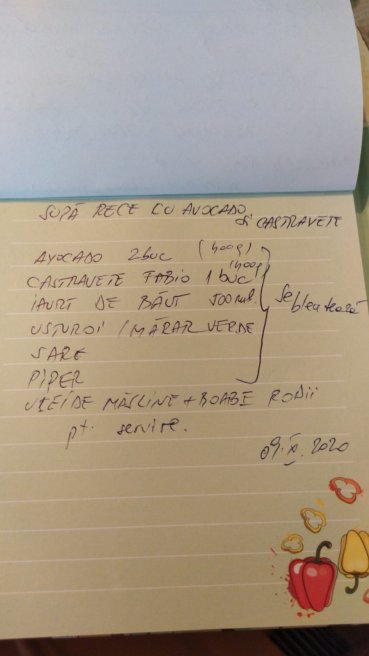 SUPĂ RECE CU AVOCADO
și CASTRAVETE
AVOCADO 2 buc (400g)
CASTRAVETE FABIO 1 buc (400g)
IAURT DE BĂUT 500 ml
USTUROI / MĂRAR VERDE
SARE
PIPER
Se blentează
ULEI DE MĂSLINE + BOABE RODII
pt. servire.
09.XI.2020